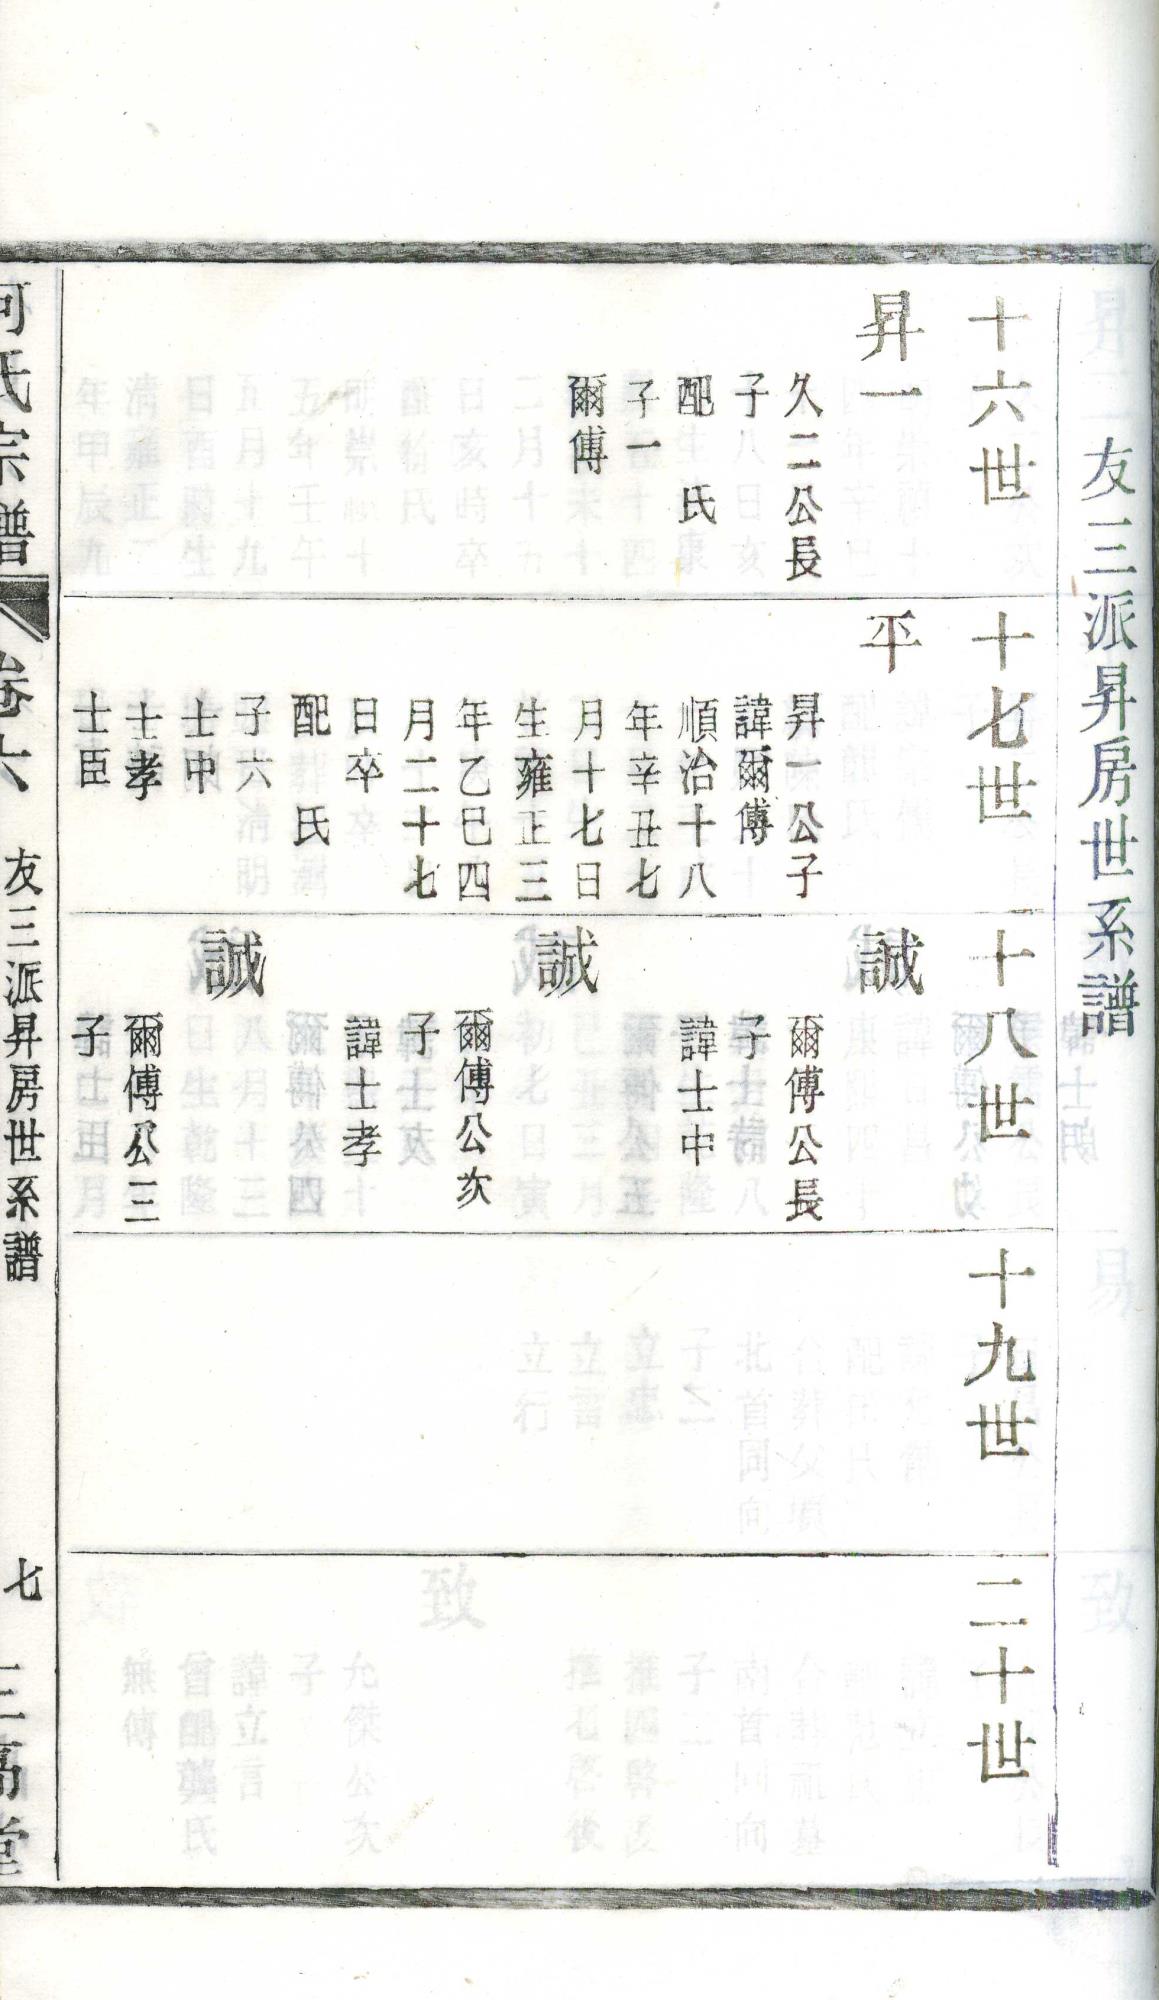 友三派昇房世系譜
十六世
昇一
久二公長
子
配　氏
子一
爾傅
十七世
平
昇一公子
諱爾傅
順治十八
年辛丑七
月十七日
生雍正三
年乙巳四
月二十七
日卒
配　氏
子六
士中
士孝
士臣
十八世
誠
爾傅公長
子
諱士中
誠
爾傅公次
子
諱士孝
誠
爾傅公三
子
十九世
二十世
何氏宗譜
卷六
友三派昇房世系譜
七
三高堂